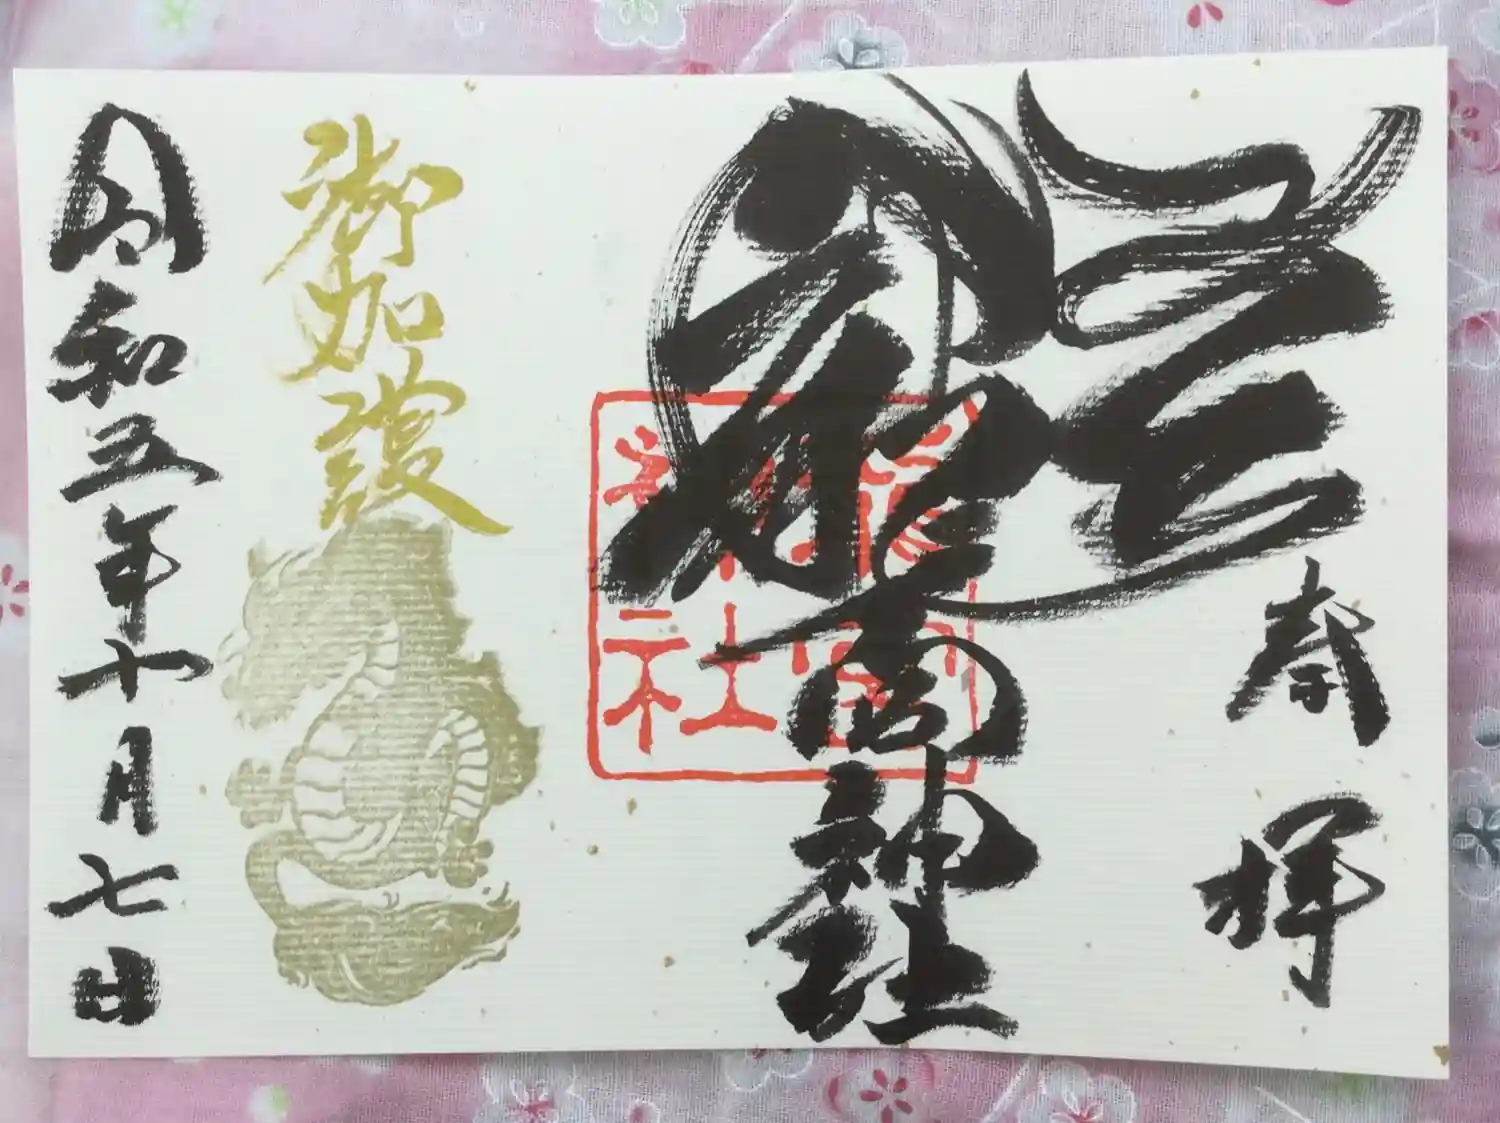 奉拝
龍宮神社
龍宮神社
御加護
令和五年十月七日